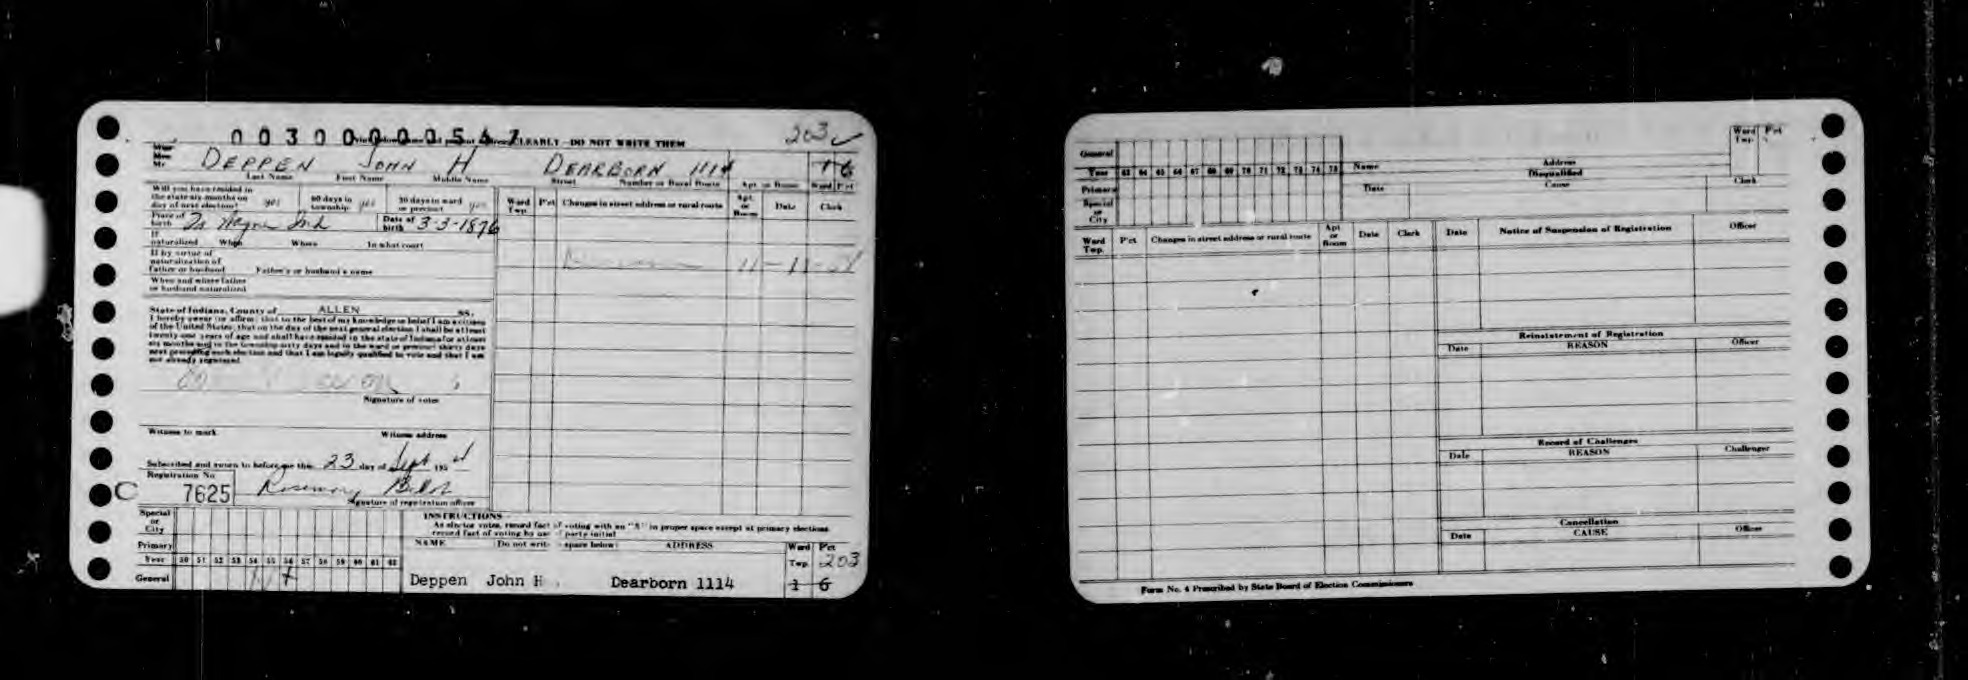 0030000547
CLEARLY - DO NOT WRITE THEM
203
Mrs
Mr
DEPPEN JOHN H DEARBORN 1114
Last Name First Name Middle Name Street Number or Rural Route Apt. or Room Ward Pct
Will you have resided in
the state six months on
day of next election? yes
60 days in
township yes
30 days in ward
or precinct yes
Ward
Twp.
Pct
Changes in street address or rural route
Apt.
or
Room
Date
Clerk
Place of
birth Ft Wayne Ind
Date of
birth 3-3-1876
If
naturalized When Where In what court
If by virtue of
naturalization of
father or husband Father's or husband's name
When and where father
or husband naturalized
State of Indiana, County of ALLEN ss.
I hereby swear (or affirm) that to the best of my knowledge or belief I am a citizen
of the United States; that on the day of the next general election I shall be at least
twenty-one years of age and shall have resided in the state of Indiana for at least
six months and in the township sixty days and in the ward or precinct thirty days
next preceding such election and that I am legally qualified to vote and that I am
not already registered.
Signature of voter
Witness to mark Witness address
Subscribed and sworn to before me this 23 day of Sept 195
Registration No
C 7625
Rosemary
Signature of registration officer
Special
or
City
Primary
Year 50 51 52 53 54 55 56 57 58 59 60 61 62
General
INSTRUCTIONS
As elector votes, record fact of voting with an "X" in proper space except at primary elections
record fact of voting by use of party initial
NAME (Do not write in space below) ADDRESS Ward Pct
Twp. 203
Deppen John H. Dearborn 1114 1 6
General
Year 63 64 65 66 67 68 69 70 71 72 73 74 75
Primary
Special
or
City
Name Address
Ward Pct
Twp.
Disqualified
Date Cause Clerk
Ward
Twp.
Pct
Changes in street address or rural route
Apt
or
Room
Date
Clerk
Date Notice of Suspension of Registration Officer
Reinstatement of Registration
Date REASON Officer
Record of Challenges
Date REASON Challenger
Cancellation
Date CAUSE Officer
Form No. 4 Prescribed by State Board of Election Commissioners